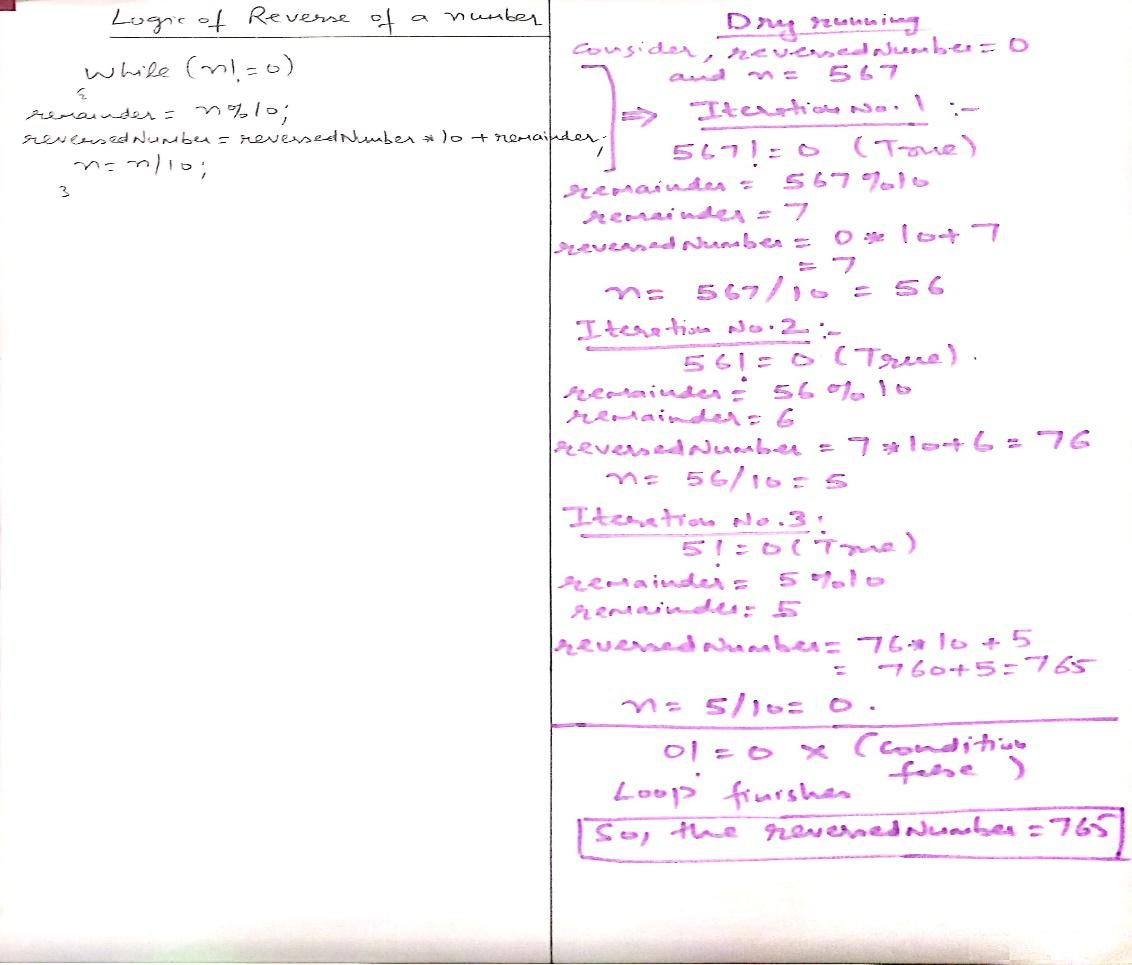 Logic of Reverse of a number
while (n!=0)
{
remainder = n%10;
reversedNumber = reversedNumber * 10 + remainder;
n = n/10;
}
Dry running
Consider, reversedNumber = 0
and n = 567
⇒ Iteration No. 1 :-
567!=0 (True)
remainder = 567%10
remainder = 7
reversedNumber = 0 * 10+7
= 7
n = 567/10 = 56
Iteration No. 2 :-
56!=0 (True).
remainder = 56 % 10
remainder = 6
reversedNumber = 7 * 10+6 = 76
n = 56/10 = 5
Iteration No. 3 :
5!=0 (True)
remainder = 5%10
remainder = 5
reversedNumber = 76 * 10 + 5
= 760+5=765
n = 5/10 = 0.
0!=0 × (condition
false)
Loop finishes
So, the reversedNumber = 765